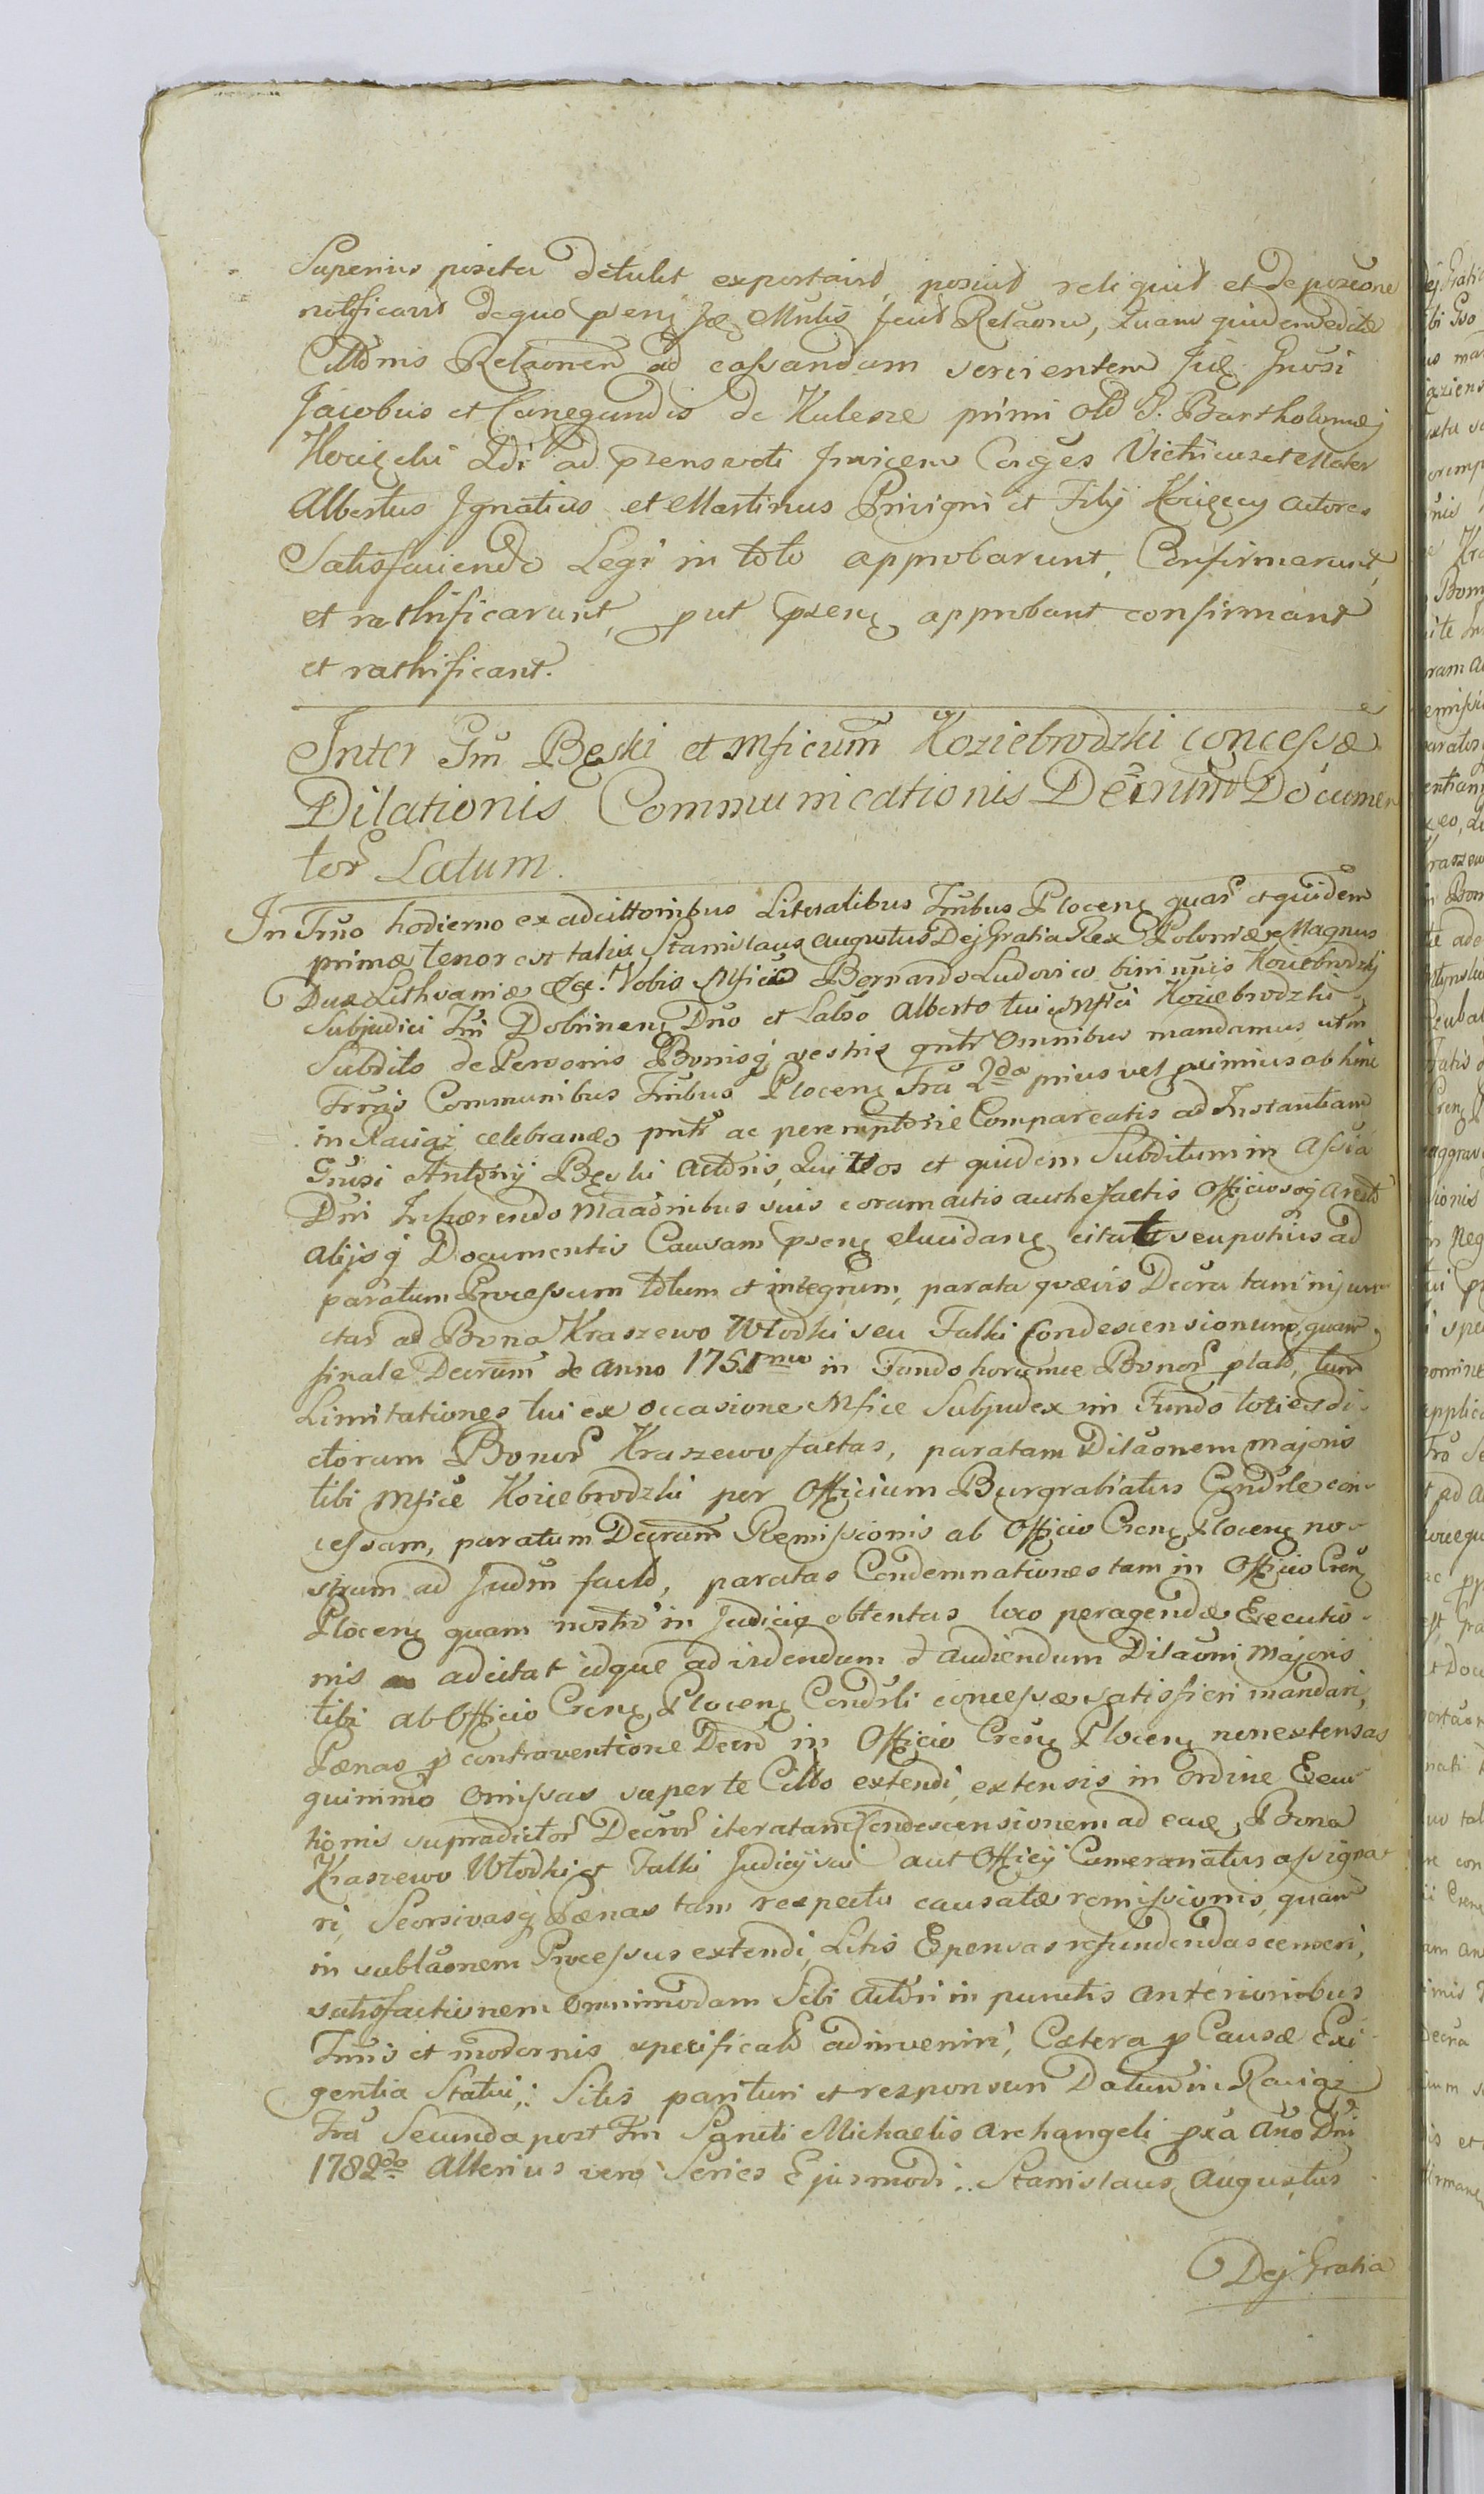 Superius posita detulit exportavit, posuit reliquit et depositione
notificavit de quo pens Jud Mntis fecit Relaõne, Quam quidem edita
Cittõnis Relaõnem ad cassandum servientem Jidẽ Gnõsi
Jacobus et Cunegundis de Kulesze primi olim G. Bartholomæj
Kocięcki 2di ad præns voti Invicem Conjges Victricus et Mater
Albertus Ignatius et Martinus Privigni et Filij Kocięccy Actores
Satisfaciendo Legi in toto approbarunt, Confirmarunt,
et rathificarunt, put præns approbant confirmant
et rathificant.
Inter Gm̃ Bęski et Mficum̃ Koziebrodzki concessæ
Dilationis Communicationis Decrum̃ Documen
tor̃ Latum.
In Trño hodierno ex adcittõnibus Literalibus Trñibus Plocens quar̃ et quidem
primæ tenor est talis Stanislaus Augustus Dej Gratia Rex Poloniæ Magnus
Dux Lithvaniæ &c. Vobis Mfico Bernardo Ludovico binimis Koziebrodzkj
Subjudici Trñi Dobrinens Dño et Labo Alberto tui Mfici Koziebrodzki
Subdito de Personis Bonisq̃ vestris gntr̃ omnibus mandamus ut in
Trñis Communibus Trñibus Plocens Fra 2da prius vel primius ab hinc
in Raciąż celebrandis pntr̃ ac peremptorie Compareatis ad Instantiam
Gnũsi Antonij Bęski Actoris, Qui Vos et quidem Subditum in Assia
Dñi Inhærendo Maadnibus suis coram actis authefactis Officiosoq̃ Aresto
alijsq̃ Documentis Causam præns elucidans citat seu potius ad
paratum Processum totum et integrum, parata quævis Decra tam injun
ctar̃ ad Bona Kraszewo Włodki seu Falki Condescensionum, quam
finale Decrum̃ de Anno 1751mo in Fundo horumce Bonor̃ plato, tum
Limitationes tui ex occasione Mfice Subjudex in Fundo toties di
ctorum Bonor̃ Kraszewo factas, paratam Dilaõnem majoris
tibi Mfice Koziebrodzki per Officium Burgrabiatus Condrle con
cessam, paratum Decrum̃ Remissionis ab Officio Crens Plocens no
strum ad Judm̃ factd, paratas Condemnationes tam in Officio Crens
Plocens quam nostro in Judicio obtentas loco peragendæ Executio
nis adcitat idque ad videndum et audiendum Dilaõni Majoris
tibi ab Officio Crens Plocens Condrli concessæ satisfieri mandari,
Pænas p contraventione Decrd in Officio Crens Plocens non extensas
quinimo omissas super te Citto extendi, extensis in ordine Execu
tionis supradictor̃ Decror̃ iteratam Condescensionem ad eadẽ Bona
Kraszewo Włodki et Falki Judicij sui aut Officij Camerariatus assigna
ri, Seorsivasq̃ Pænas tam respectu causatæ remissionis, quam
in sublaõnem Processus extendi, Litis Expensas refundendas censeri,
satisfactionem omnimodam Sibi Actori in punctis anterioribus
Trñis et modernis specificatd adinveniri, Cætera p Causæ Exi
gentia Statui: Sitis parituri et responsuri Datum in Raciąż
Fra Secunda post Fm̃ Sancti Michaelis Archangeli pxa Año Dñi
1782do Alterius vero Series Ejusmodi: Stanislaus Augustus
Dej Gratia